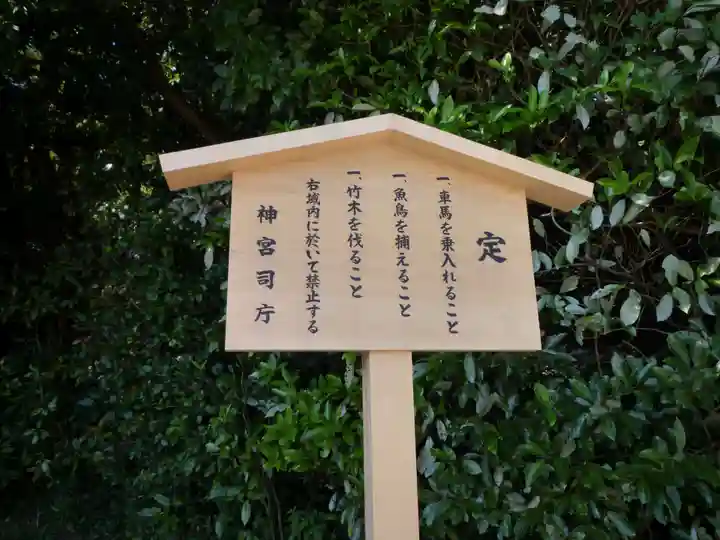 定
一、車馬を乗入れること
一、魚鳥を捕えること
一、竹木を伐ること
右域内に於いて禁止する
神宮司庁